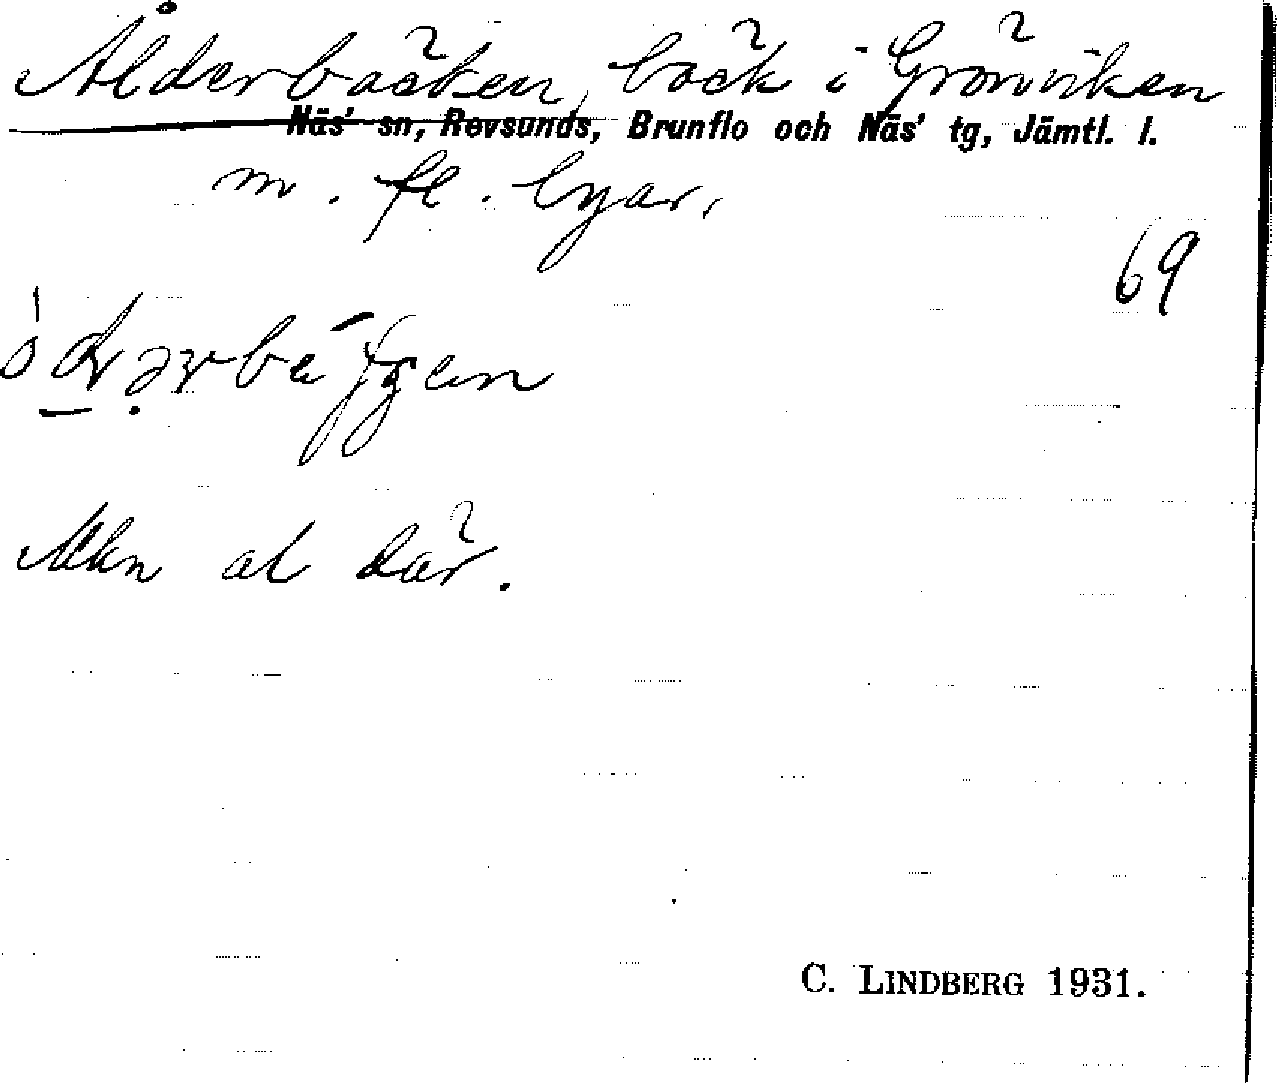 Ålderbäcken, bäck i Grönviken
Näs' sn, Revsunds, Brunflo och Näs' tg, Jämtl. l.
m. fl. byar.
69
al där.
C. LINDBERG 1931.